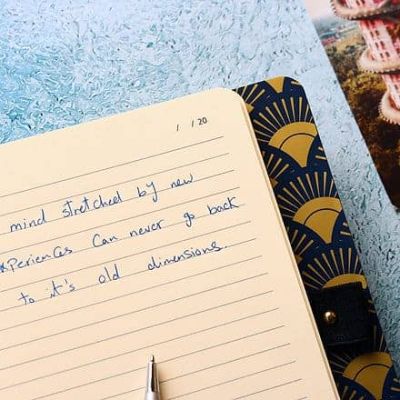 / /20
mind stretched by new
experiences can never go back
to it's old dimensions.